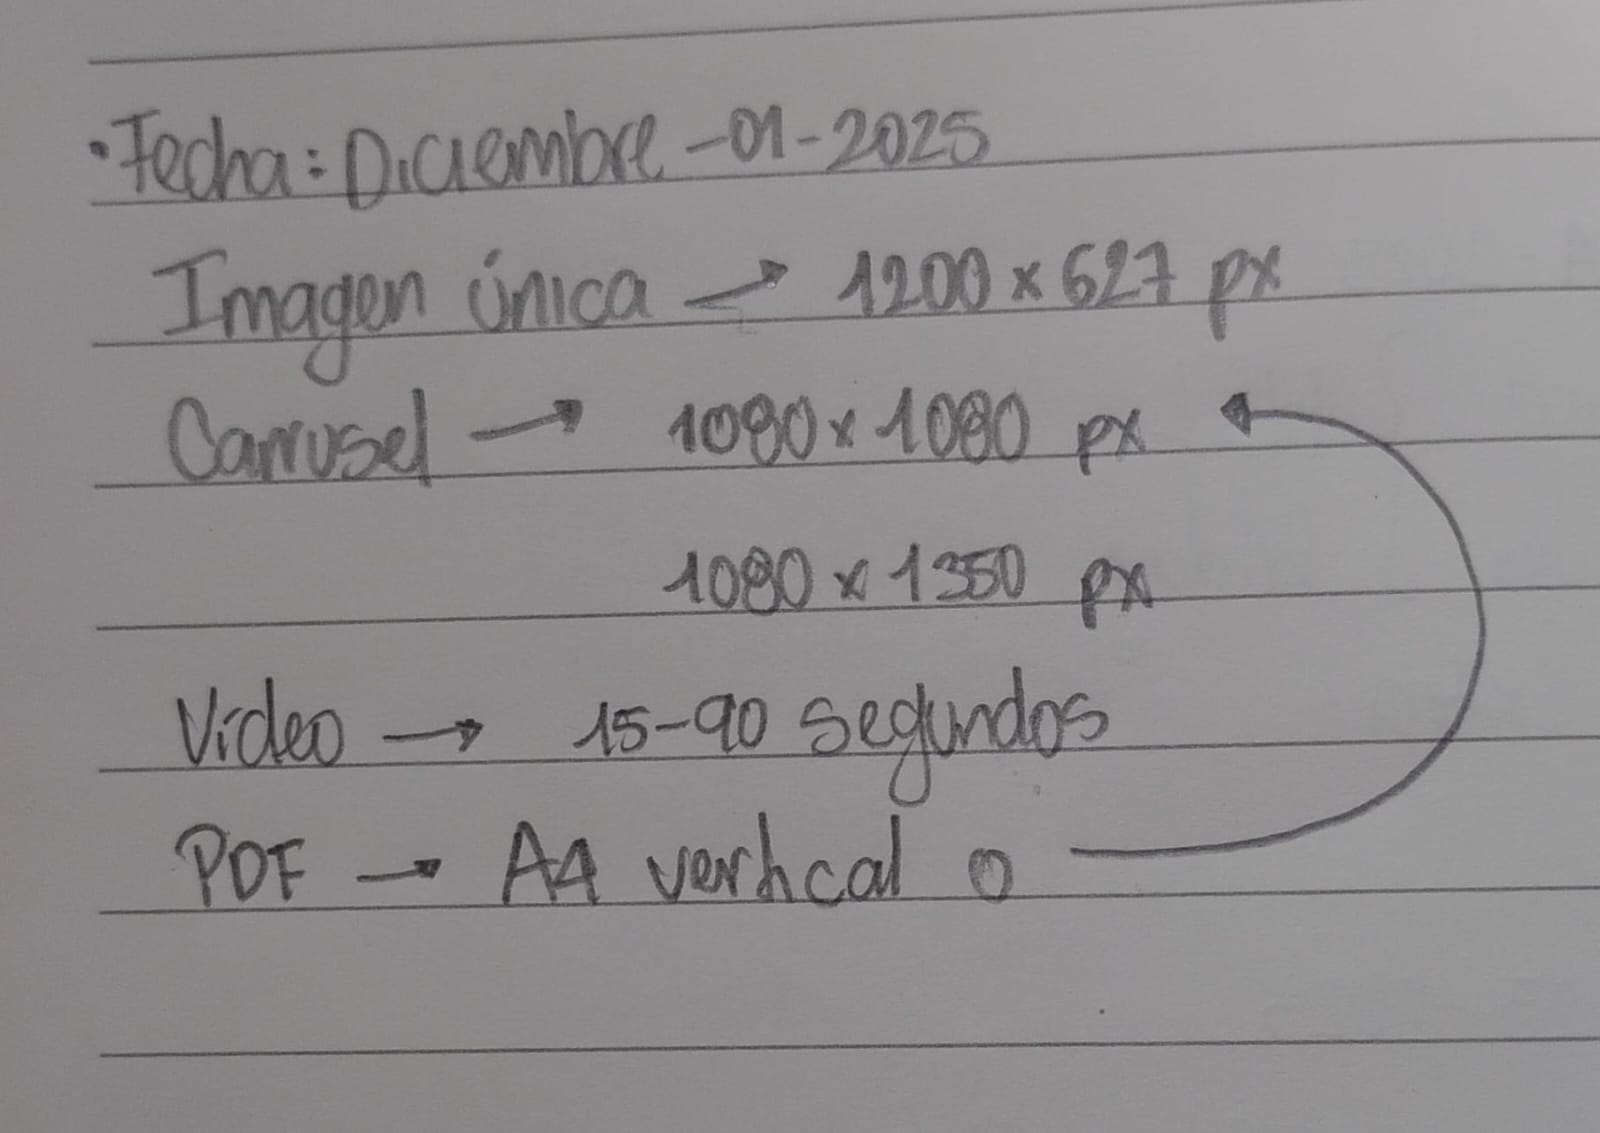 • Fecha: Diciembre - 01 - 2025
Imagen única → 1200 x 627 px
Carrusel → 1080 x 1080 px
1080 x 1350 px
Video → 15-90 segundos
PDF → A4 vertical o